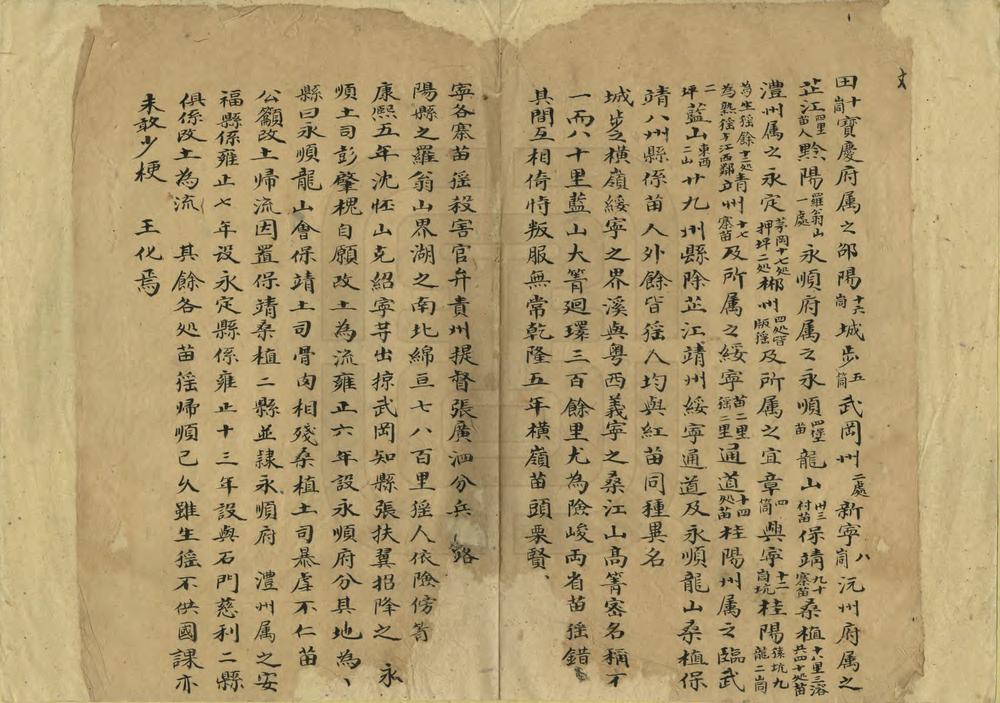 田十峝寳慶府属之邵陽十六峝城步五峝武岡州二處新寧八峝沅州府属之
芷江四里苗人黔陽羅翁山一處永順府属之永順四堡苗龍山卅三村苗保靖九十寨苗桑植十八里三溶共四十処苗
澧州属之永定茅岡十七処押坪二処郴州四処皆版猺及所属之宜章四峝興寧十二崗坑桂陽猺坑九龍二崗
為生猺餘十三処為熟猺与江西鄰靖州十七寨苗及所属之綏寧苗二里猺二里通道十四処苗桂陽州属之臨武二
坪藍山東西二山廿九州縣除芷江靖州綏寧通道及永順龍山桑植保
靖八州縣係苗人外餘皆猺人均與紅苗同種異名
城步之橫嶺綏寧之界溪與粤西義寧之桑江山高箐密名稱不
一而八十里藍山大箐廻環三百餘里尤為險峻両省苗猺錯
其間互相倚恃叛服無常乾隆五年橫嶺苗頭粟賢、
寧各寨苗猺殺害官弁貴州提督張廣泗分兵 路
陽縣之羅翁山界湖之南北綿亘七八百里猺人依險傍箐
康熙五年沈怌山克紹寧芽出掠武岡知縣張扶翼招降之 永
順土司彭肇槐自願改土為流雍正六年設永順府分其地為、
縣曰永順龍山會保靖土司骨肉相殘桑植土司暴虐不仁苗
公籲改土歸流因置保靖桑植二縣並隸永順府 澧州属之安
福縣係雍正七年设永定縣係雍正十三年設與石門慈利二縣
俱係改土為流 其餘各処苗猺帰順已久雖生猺不供國課亦
未敢少梗 王化焉